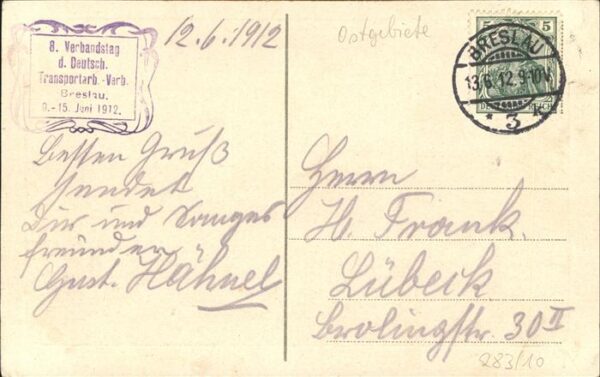 8. Verbandstag
d. Deutsch.
Transportarb.-Verb.
Breslau.
9.-15. Juni 1912.
12.6.1912
Ostgebiete
5 5
BRESLAU
13.6.12.9-10V.
* 3 k
DEUTSCHES REICH
Besten Gruß
sendet
Dir und Sanges
freunden
Gust. Hähnel
Herrn
H. Frank.
Lübeck
Brolingstr. 30 II
283/10